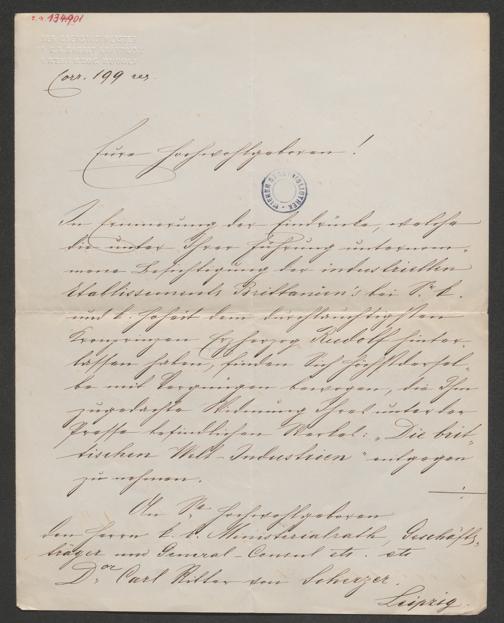 I.N. 134901
Corr. 199 res.
Eure Hochwohlgeboren!
WIENER STADTBIBLIOTHEK
In Erinnerung der Eindrücke, welche
die unter Ihrer Führung unternom-
mene Besichtigung der industriellen
Etablissements Brittanien's bei Sr. k.
und k. Hoheit dem durchlauchtigsten
Kronprinzen Erzherzog Rudolf hinter-
lassen haben, finden Sich Höchstdersel-
be mit Vergnügen bewogen, die Ihm
zugedachte Widmung Ihres unter der
Presse befindlichen Werkes: „Die brit-
tischen Welt-Industrien" entgegen
zu nehmen.
An Sr. Hochwohlgeboren
den Herrn k. k. Ministerialrath, Geschäfts-
träger und General-Consul etc. etc
Dor. Carl Ritter von Scherzer.
Leipzig.